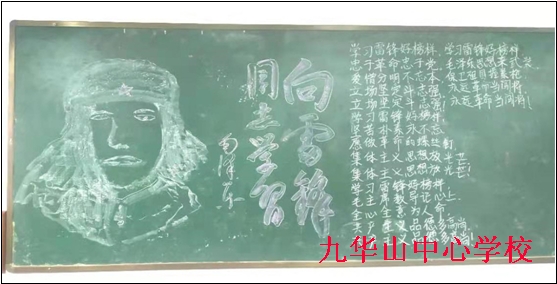 向雷锋
同志学习
毛泽东
学习雷锋好榜样
忠于革命忠于党
爱憎分明不忘本
立场坚定斗志强
立场坚定斗志强!
学习雷锋好榜样
艰苦朴素永不忘
愿做革命的螺丝钉
集体主义思想放光芒
集体主义思想放光芒!
学习雷锋好榜样
毛主席教导记心上
全心全意为人民
学习雷锋好榜样
毛泽东思想来武装
保卫祖国握紧枪
永远革命当闯将!
永远革命当闯将!
九华山中心学校